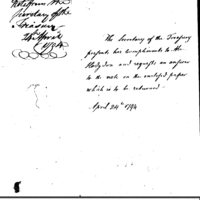 Note from the
Secretary of the
Treasury
24th April
1794
The Secretary of the Treasury
presents his compliments to Mr
Hodgdon and requests an answer
to the note on the enclosed paper
which is to be returned
April 24th 1794